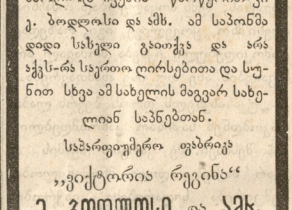 ე. ბოდლოსი და ამხ. ამ საპონმა
დიდი სახელი გაითქვა და არა
აქვს-რა საერთო ღირსებითა და სუ-
ნით სხვა ამ სახელის მაგვარ სახე-
ლიან საპნებთან.
საპარფიუმერო ფაბრიკა
„ვიქტორია რეგინა“
ე. ბოდლოსი და ამხ.